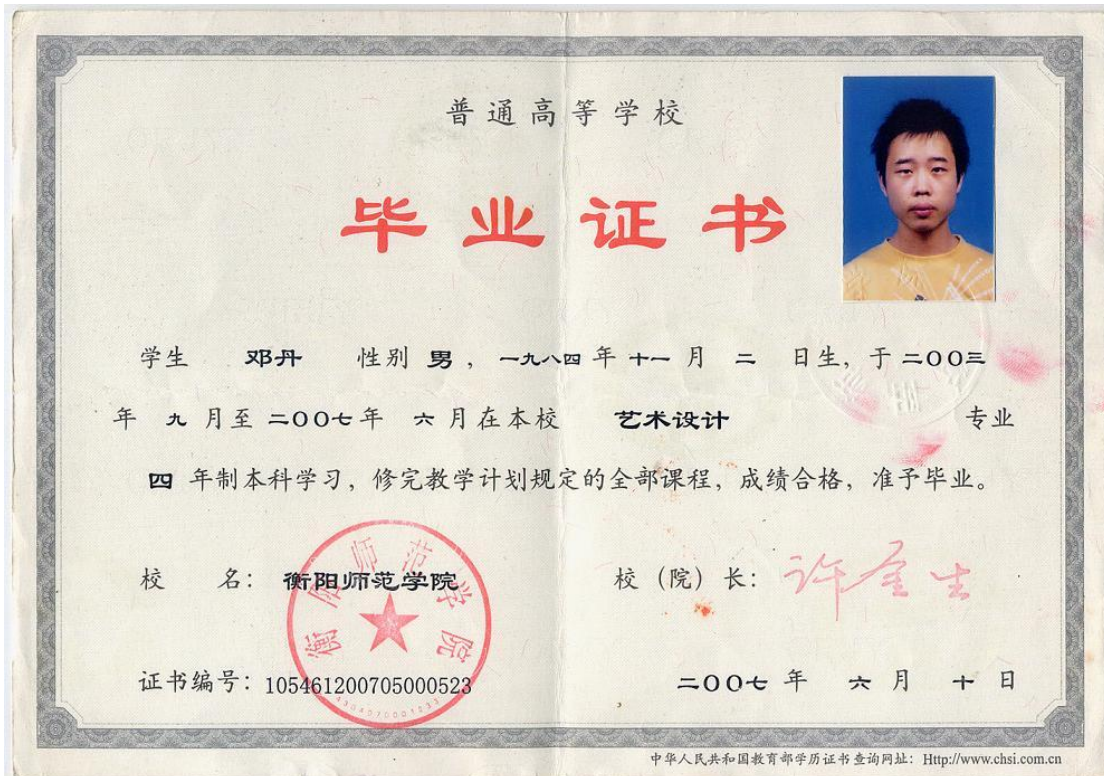 普通高等学校
毕业证书
学生 邓丹 性别 男，一九八四 年 十一 月 二 日生，于 二〇〇三
年 九 月至 二〇〇七 年 六 月在本校 艺术设计 专业
四 年制本科学习，修完教学计划规定的全部课程，成绩合格，准予毕业。
校 名：衡阳师范学院
衡阳师范学院
校（院）长：许金生
证书编号：105461200705000523
二〇〇七 年 六 月 十 日
中华人民共和国教育部学历证书查询网址：Http://www.chsi.com.cn